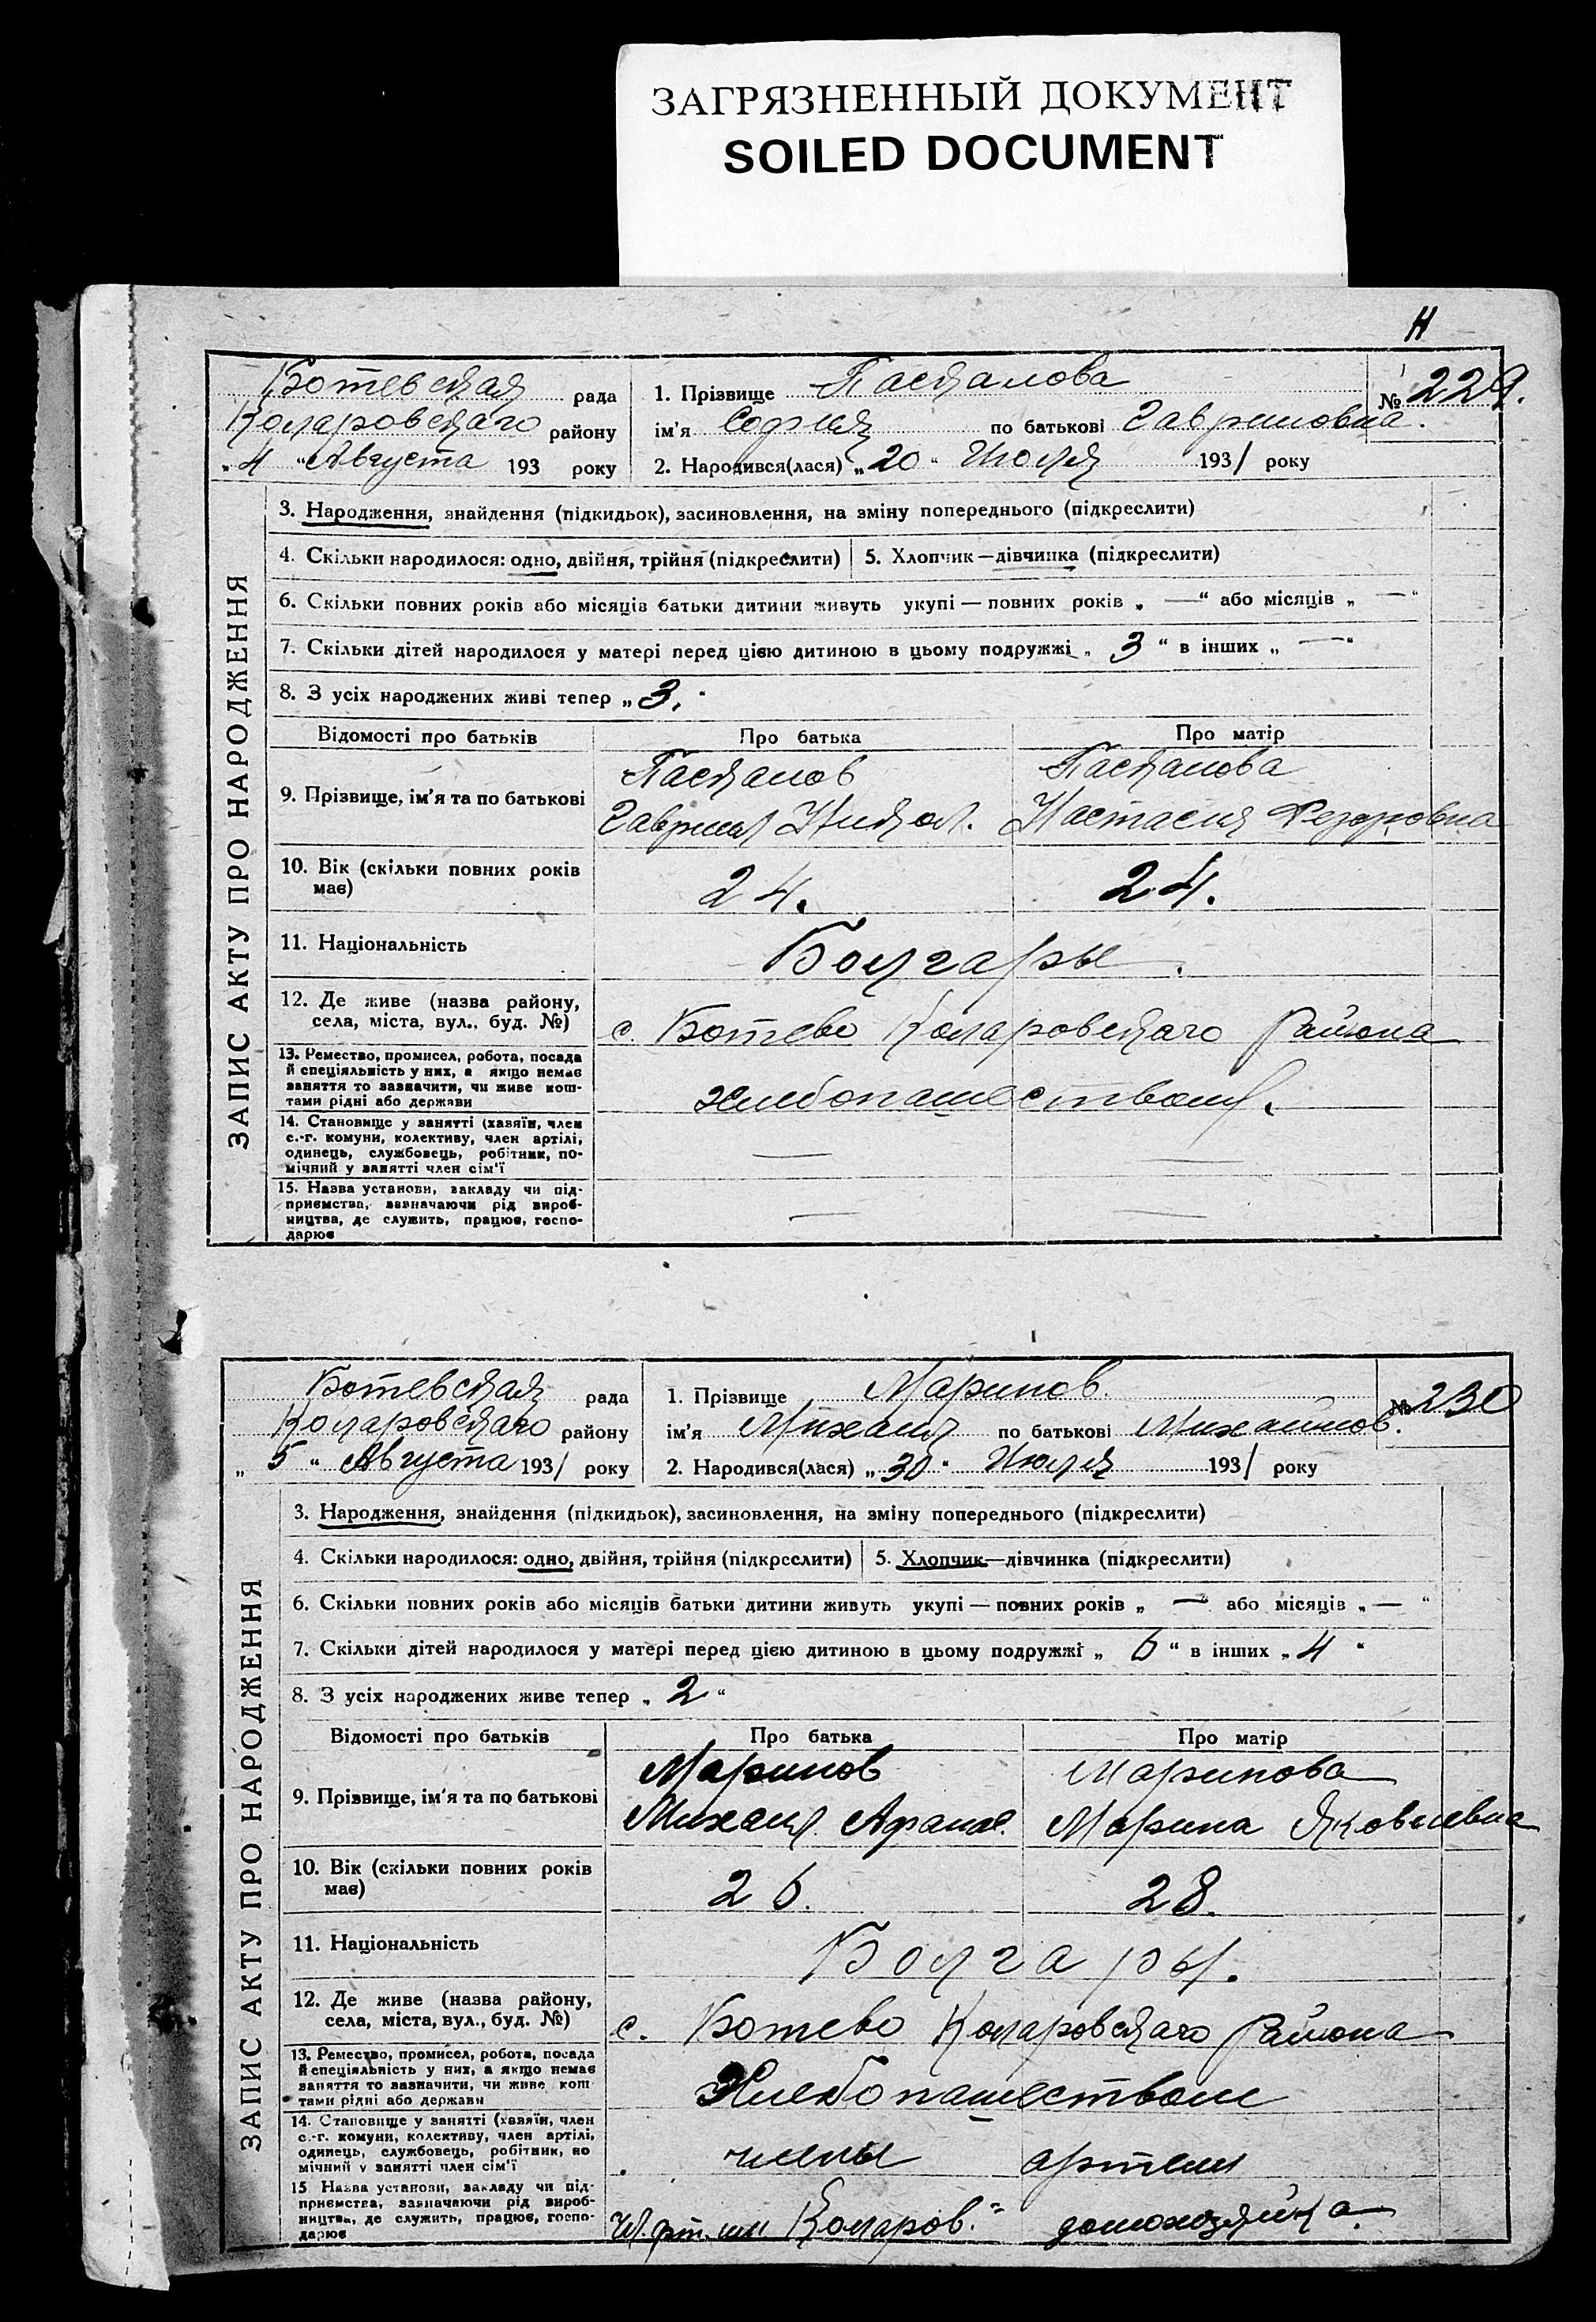 ЗАГРЯЗНЕННЫЙ ДОКУМЕНТ
SOILED DOCUMENT
Н
Ботевская рада
Коларовскаго району
„4“ Августа 193 року
1. Прізвище Паскалова
№ 229.
ім'я София по батькові Гавриловна.
2. Народився(лася) „20“ Июля 1931 року
ЗАПИС АКТУ ПРО НАРОДЖЕННЯ
3. Народження, знайдення (підкидьок), засиновлення, на зміну попереднього (підкреслити)
4. Скільки народилося: одно, двійня, трійня (підкреслити) 5. Хлопчик—дівчинка (підкреслити)
6. Скільки повних років або місяців батьки дитини живуть укупі — повних років „ — “ або місяців „ — “
7. Скільки дітей народилося у матері перед цією дитиною в цьому подружжі „ 3 “ в інших „ — “
8. З усіх народжених живі тепер „ 3. “
Відомості про батьків Про батька Про матір
9. Прізвище, ім'я та по батькові
Паскалов Паскалова
Гаврил Никол. Настасия Федоровна
10. Вік (скільки повних років
має)
24. 24.
11. Національність Болгары.
12. Де живе (назва району,
села, міста, вул., буд. №)
с. Ботево Коларовскаго района
13. Ремество, промисел, робота, посада
й спеціяльність у них, а якщо немає
заняття то зазначити, чи живе кош-
тами рідні або держави
хлебопашеством.
14. Становище у занятті (хазяїн, член
с.-г. комуни, колективу, член артілі,
одинець, службовець, робітник, по-
мічний у занятті член сім'ї
— —
15. Назва установи, закладу чи під-
приємства, зазначаючи рід вироб-
ництва, де служить, працює, госпо-
дарює
— —
Ботевская рада
Коларовскаго району
„5“ Августа 1931 року
1. Прізвище Маринов.
№ 230
ім'я Михаил по батькові Михайлов.
2. Народився(лася) „30“ Июля 1931 року
ЗАПИС АКТУ ПРО НАРОДЖЕННЯ
3. Народження, знайдення (підкидьок), засиновлення, на зміну попереднього (підкреслити)
4. Скільки народилося: одно, двійня, трійня (підкреслити) 5. Хлопчик—дівчинка (підкреслити)
6. Скільки повних років або місяців батьки дитини живуть укупі — повних років „ — “ або місяців „ — “
7. Скільки дітей народилося у матері перед цією дитиною в цьому подружжі „ 6 “ в інших „ 4 “
8. З усіх народжених живе тепер „ 2 “
Відомості про батьків Про батька Про матір
9. Прізвище, ім'я та по батькові
Маринов Маринова
Михаил Афанас. Марина Яковлевна
10. Вік (скільки повних років
має)
26. 28.
11. Національність Болгары.
12. Де живе (назва району,
села, міста, вул., буд. №)
с. Ботево Коларовскаго района
13. Ремество, промисел, робота, посада
й спеціяльність у них, а якщо немає
заняття то зазначити, чи живе кош-
тами рідні або держави
Хлебопашеством
14. Становище у занятті (хазяїн, член
с.-г. комуни, колективу, член артілі,
одинець, службовець, робітник, по
мічний у занятті член сім'ї
члены артели
15 Назва установи, закладу чи під-
приємства, зазначаючи рід вироб-
ництва, де служить, працює, госпо-
дарює
Коларов.“ домохозяйка